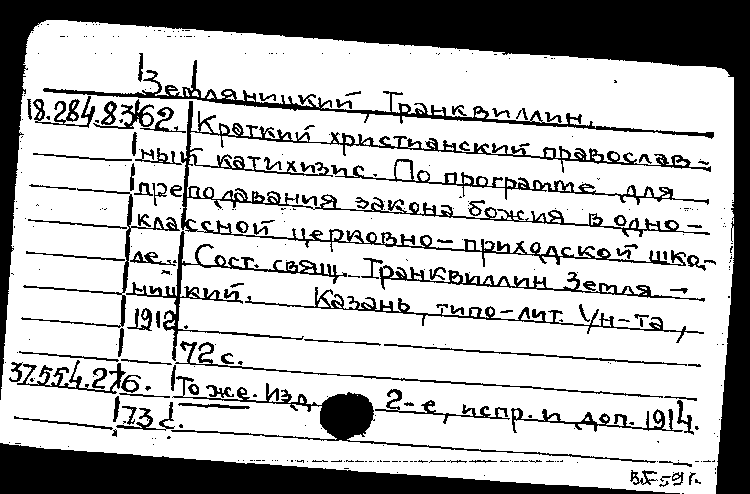 Земляницкий, Транквиллин.
18.284.8362. Краткий христианский православ-
ный катихизис. По программе для
преподавания закона божия в одно-
классной церковно-приходской шко-
ле. Сост. свящ. Транквиллин Земля-
ницкий. Казань, типо-лит. Ун-та,
1912.
72 с.
37.554.276. То же. Изд. 2-е, испр. и доп. 1914.
73 с.